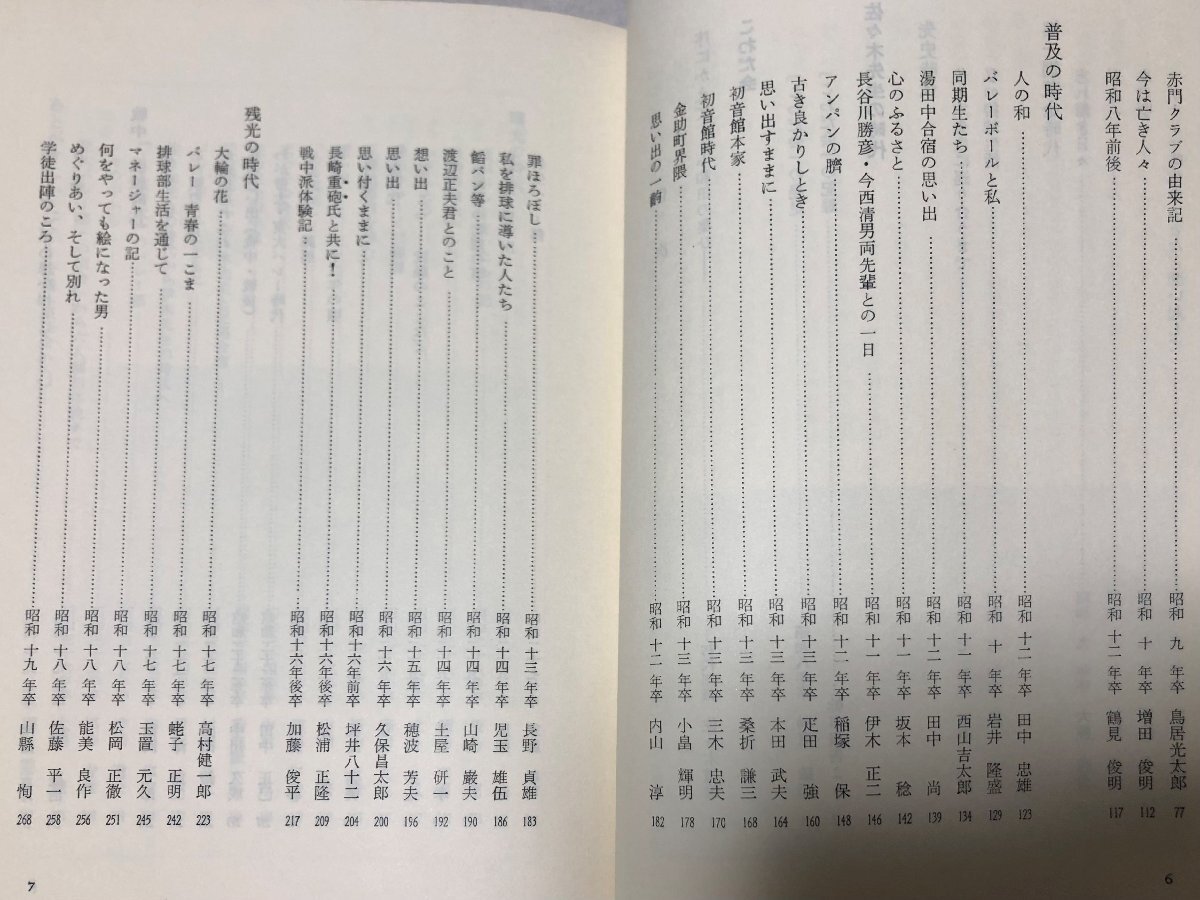 赤門クラブの由来記……昭和 九 年卒 鳥居光太郎 77
今は亡き人々……昭和 十 年卒 増田 俊明 112
昭和八年前後……昭和 十二 年卒 鶴見 俊明 117
普及の時代
人の和……昭和 十二 年卒 田中 忠雄 123
バレーボールと私……昭和 十 年卒 岩井 隆盛 129
同期生たち……昭和 十一 年卒 西山吉太郎 134
湯田中合宿の思い出……昭和 十二 年卒 田中 尚 139
心のふるさと……昭和 十一 年卒 坂本 稔 142
長谷川勝彦・今西清男両先輩との一日……昭和 十一 年卒 伊木 正二 146
アンパンの臍……昭和 十二 年卒 稲塚 保 148
古き良かりしとき……昭和 十三 年卒 疋田 強 160
思い出すままに……昭和 十三 年卒 本田 武夫 164
初音館本家……昭和 十三 年卒 桑折 謙三 168
初音館時代……昭和 十三 年卒 三木 忠夫 170
金助町界隈……昭和 十三 年卒 小畠 輝明 178
思い出の一齣……昭和 十二 年卒 内山 淳 182
6
罪ほろぼし……昭和 十三 年卒 長野 貞雄 183
私を排球に導いた人たち……昭和 十四 年卒 児玉 雄伍 186
餡パン等……昭和 十四 年卒 山崎 巌夫 190
渡辺正夫君とのこと……昭和 十四 年卒 土屋 研一 192
想い出……昭和 十五 年卒 穂波 芳夫 196
思い出……昭和 十六 年卒 久保昌太郎 200
思い付くままに……昭和 十六年前卒 坪井八十二 204
長崎重砲氏と共に！……昭和 十六年後卒 松浦 正隆 209
戦中派体験記……昭和 十六年後卒 加藤 俊平 217
残光の時代
大輪の花……昭和 十七 年卒 高村健一郎 223
バレー 青春の一こま……昭和 十七 年卒 蛯子 正明 242
排球部生活を通じて……昭和 十七 年卒 玉置 元久 245
マネージャーの記……昭和 十八 年卒 松岡 正徹 251
何をやっても絵になった男……昭和 十八 年卒 能美 良作 256
めぐりあい、そして別れ……昭和 十八 年卒 佐藤 平一 258
学徒出陣のころ……昭和 十九 年卒 山縣 恂 268
7